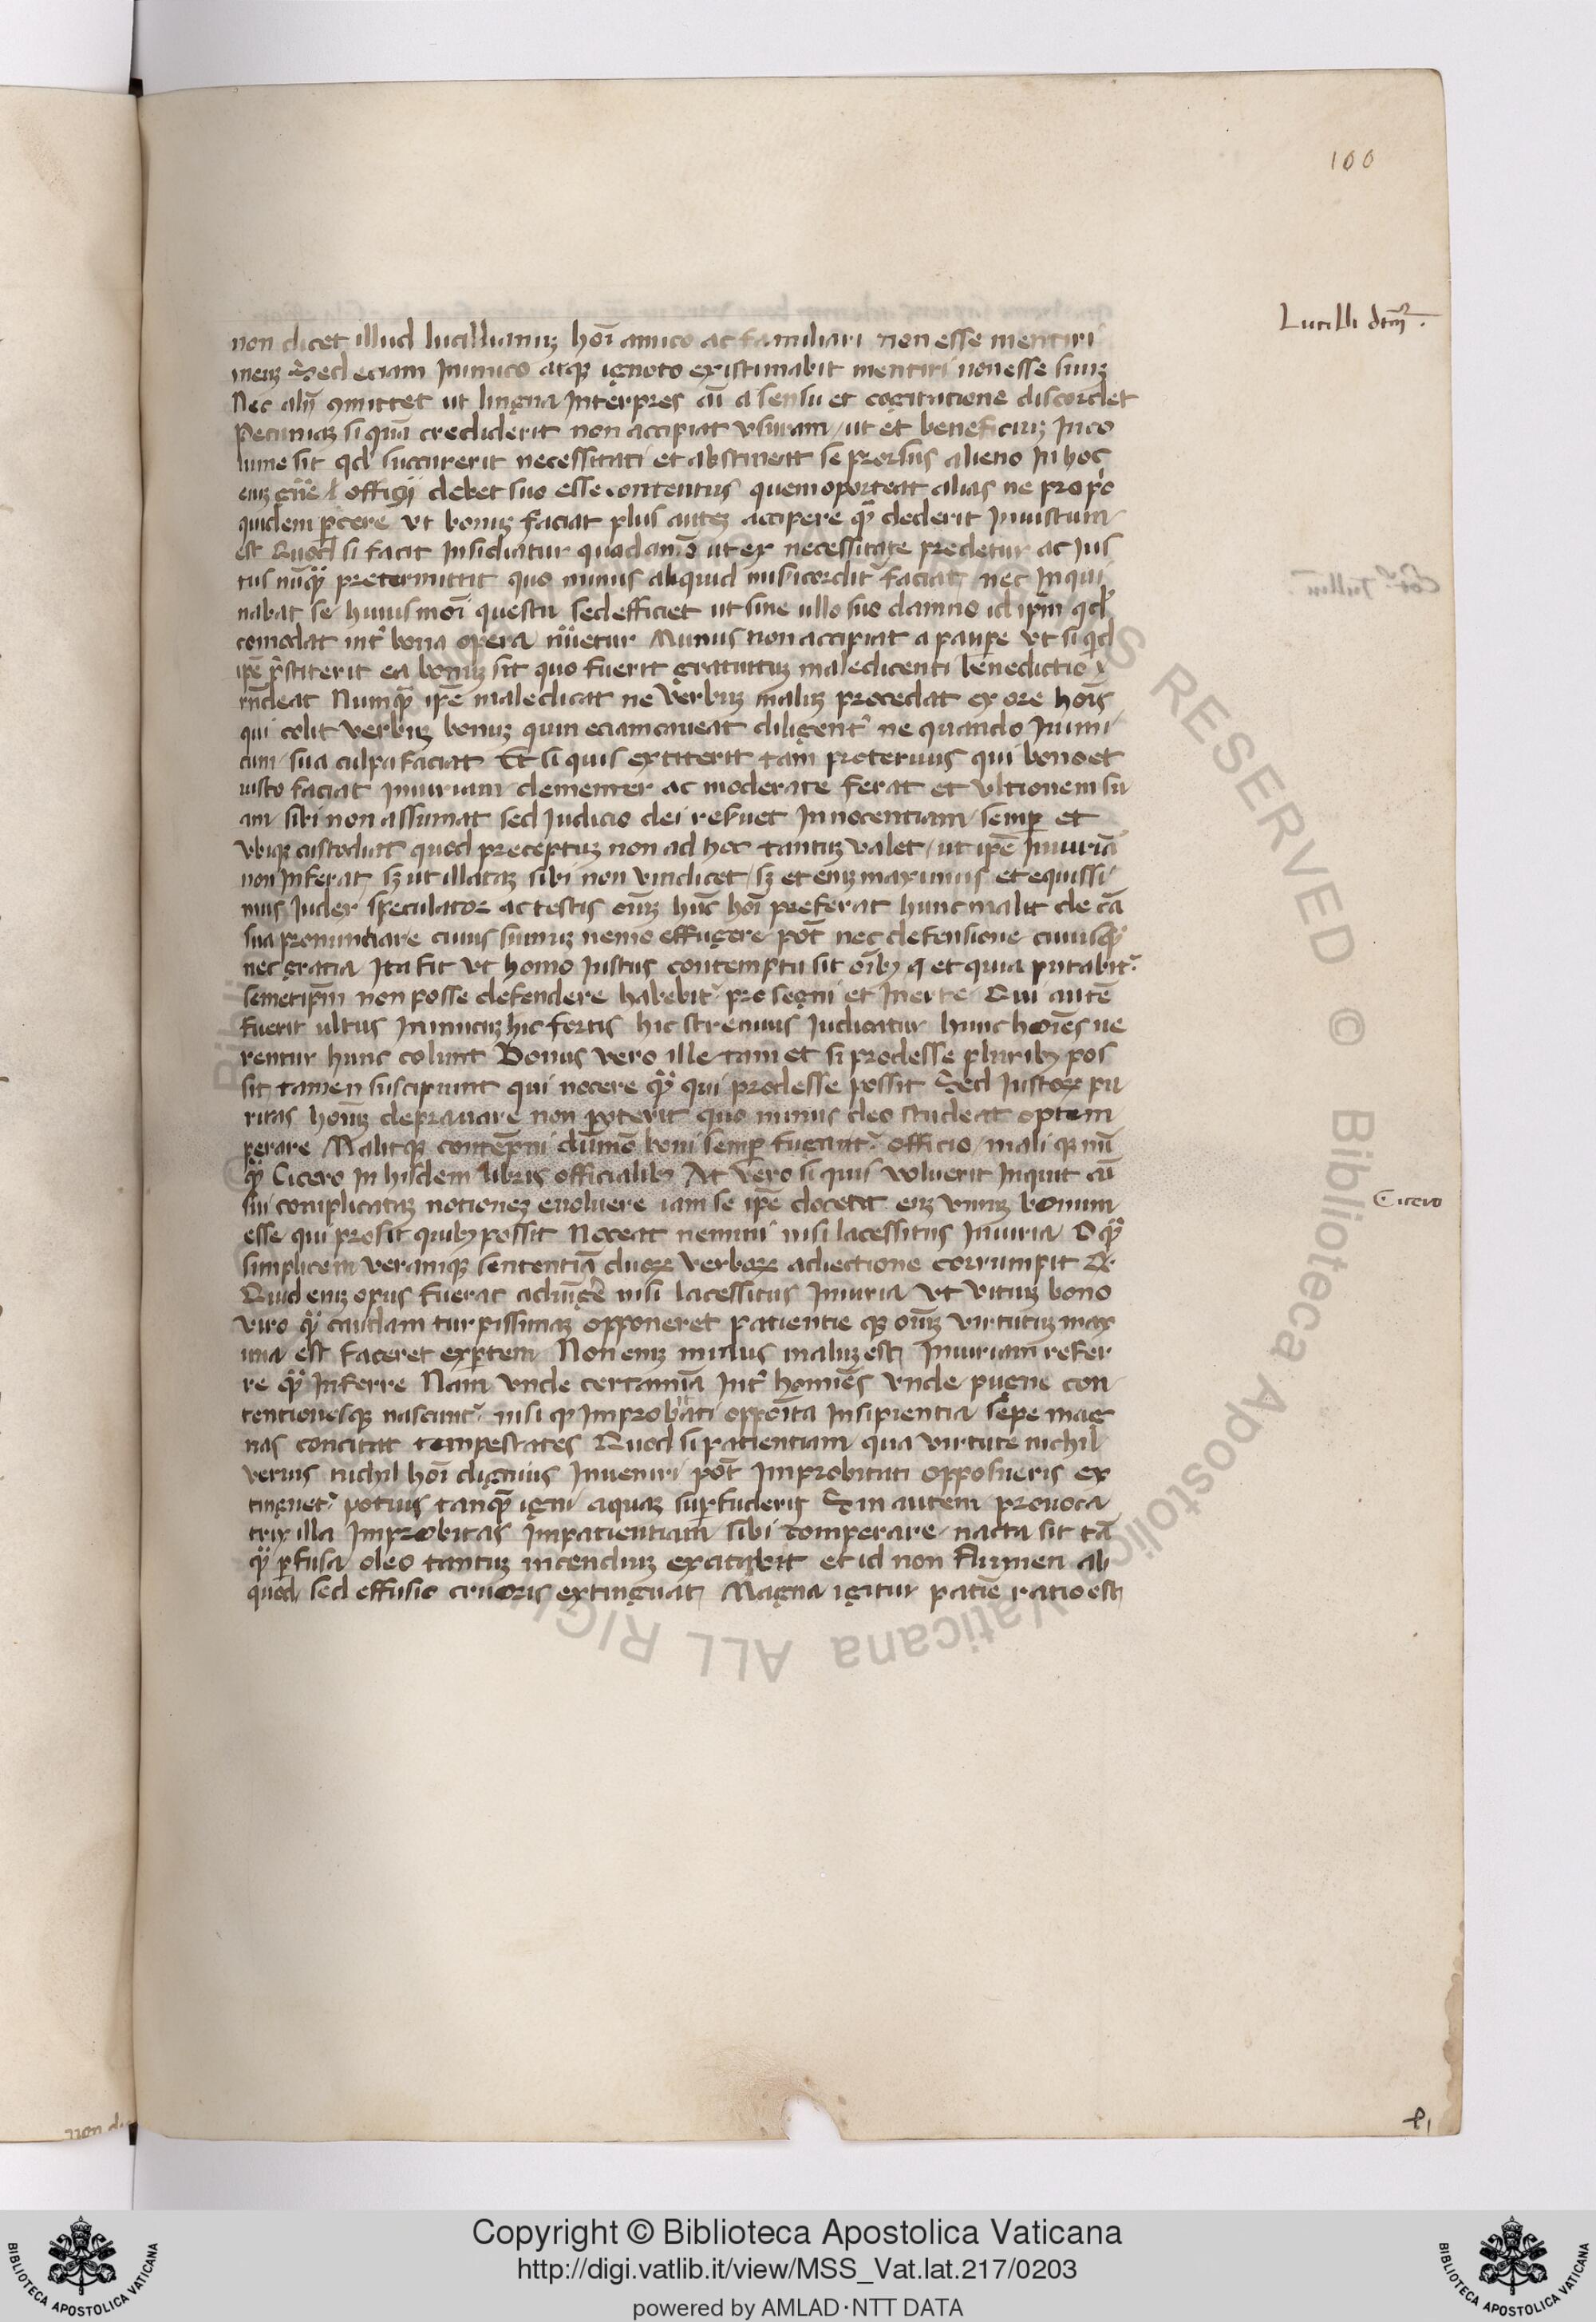 100
Lucilli dc̄m̄.
non dicet illud lucillianuȝ hoı̄ amico ac familiari non esse mentiri
meuȝ Sed eciam Inimico atqȝ ignoto existimabit mentiri non esse suuȝ
Nec alij 9mittet ut lingua Interpres aı̄ a sensu et cogitatione discordet
Pecuniaȝ si quā crediderit non accipiat vsuram / ut et beneficiuȝ Inco
lume sit qd succurerit necessitati et abstineat se prorsus alieno In hoc
eniȝ gn̄e offigij debet suo esse contentus quem oporteat alias ne propō
quidem p̱cere Vt bonuȝ faciat plus auteȝ accipere qͣ̄ dederit Iniustum
est Quod si facit Insidiatur quadamō ut ex necessitate predetur ac Jus
tus nūqͣ̄ pretermittit quo minus aliquid mis̄icordit̄ faciat / nec Inqui
nabat se huiusmōi questu sed efficiet ut sine ullo suo damno id ip̄m qd̄
comodat int̉ bona opera nūetur Munus non accipiat a paup̱e Vt si qͥd
ip̄e p̄stiterit ea bonuȝ sit quo fuerit gratuituȝ maledicenti benedictio
rn̄deat Numqͣ̄ ip̄e maledicat ne verbuȝ maluȝ procedat ex ore hoı̄s
qui colit verbuȝ bonuȝ quin eciam caueat diligent̉ ne quando Inimi
cum sua culpa faciat Et si quis extiterit tam proteruus qui bono et
iusto faciat Iniuriam clementer ac moderate ferat et vltionem su
am sibi non assumat sed Judicio dei res̉uet Innocentiam semp̱ et
vbiqȝ custodiat quod preceptuȝ non ad hoc tantuȝ valet / ut ip̄e Iniuriā
non Inferat / sȝ ut illataȝ sibi non vindicet / sȝ et eniȝ maximus et equissi
mus Judex speculator ac testis oı̄uȝ hūc hoı̄ preferat hunc malit de cā
sua pronunciare cuius sumuȝ nemo effugere pōt nec defensione cuiusqͣ̄
nec gratia Ita fit vt homo Iustus contemptu sit oı̄bȝ q et quia putabit̉
semetip̄m non posse defendere habebit̉ pro segni et Inerte Qui autē
fuerit ultus Inimicuȝ hic fortis hic strenuus Judicatur hunc hoı̄es ue
rentur hunc colunt Bonus vero ille tam et si prodesse pluribȝ pos
sit tamen suscipiunt qui nocere qͣ̄ qui prodesse possit Sed Justoꝝ pu
ritas hoı̄uȝ deprauare non poterit quo minus deo studeat optem
perare Malitqȝ contēp̄ni dūmō boni semp̱ fugant̉ officio / mali qȝ nū
qͣ̄ Cicero In hisdem libris officialibȝ At vero si quis voluerit Inquit aı̄
sui complicataȝ notioneȝ euoluere iam se ip̄e doceat eiȝ vnuȝ bonum
Cicero
esse qui prosit quibȝ possit Noceat nemini nisi lacessitus Iniuria O qͣ̄
simplicem veramqȝ sententiā duoꝝ verboꝝ adiectione corrumpit
Quid eniȝ opus fuerat adiūgē nisi lacessitus Iniuria Vt vituȝ bono
viro qͣ̄ caudam turpissimaȝ opponeret patientie qȝ oı̄uȝ virtutuȝ max
ima est faceret exp̱tem Non eniȝ minus maluȝ est Iniuriam refer
re qͣ̄ Inferre Nam vnde certamı̄a Int̉ homı̄es vnde pugne con
tentionesqȝ nascunt̉ nisi qȝ Improbitati oppoı̄ta Insipientia sepe mag
nas concitat tempestates Quod si patientiam qua virtute nichil
verius nichil hoı̄ dignius Inueniri pōt Improbitati opposueris ex
tinguet̉ potius tanqͣ̄ igni aquaȝ sup̱fuderis Sin autem prouoca
trix illa Improbitas Impatientiam sibi comperare nacta sit tā
qͣ̄ p̱fusa oleo tantuȝ incendiuȝ excitabit et id non flumen ab
quod sed effusio cruoris extinguat / Magna igitur patiē ratio est
Copyright © Biblioteca Apostolica Vaticana
http://digi.vatlib.it/view/MSS_Vat.lat.217/0203
powered by AMLAD·NTT DATA
BIBLIOTECA APOSTOLICA VATICANA
BIBLIOTECA APOSTOLICA VATICANA